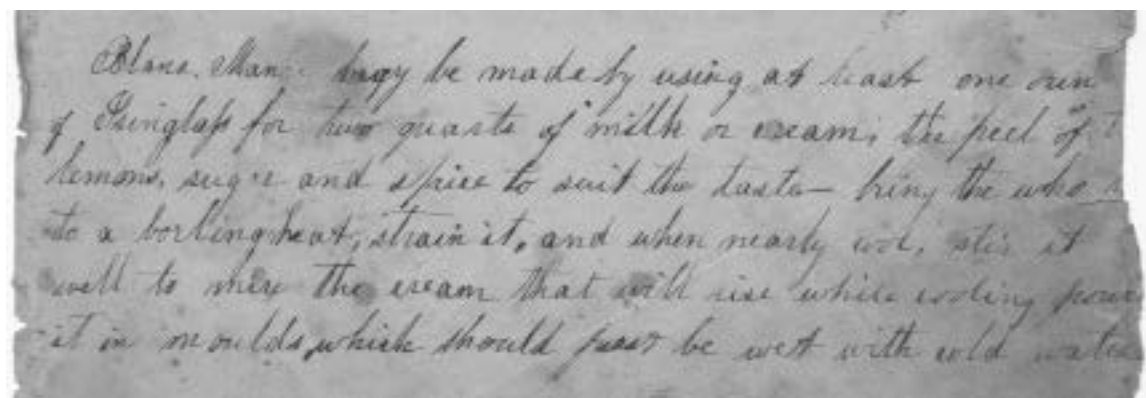 Blanc. Mange may be made by using at least one oun
of Isinglass for two quarts of milk or cream, the peel of
lemons, sugar and spice to suit the taste — bring the whole
to a boiling heat, strain it, and when nearly cool, stir it
well to mix the cream that will rise while cooling pour
it in moulds, which should first be wet with cold water